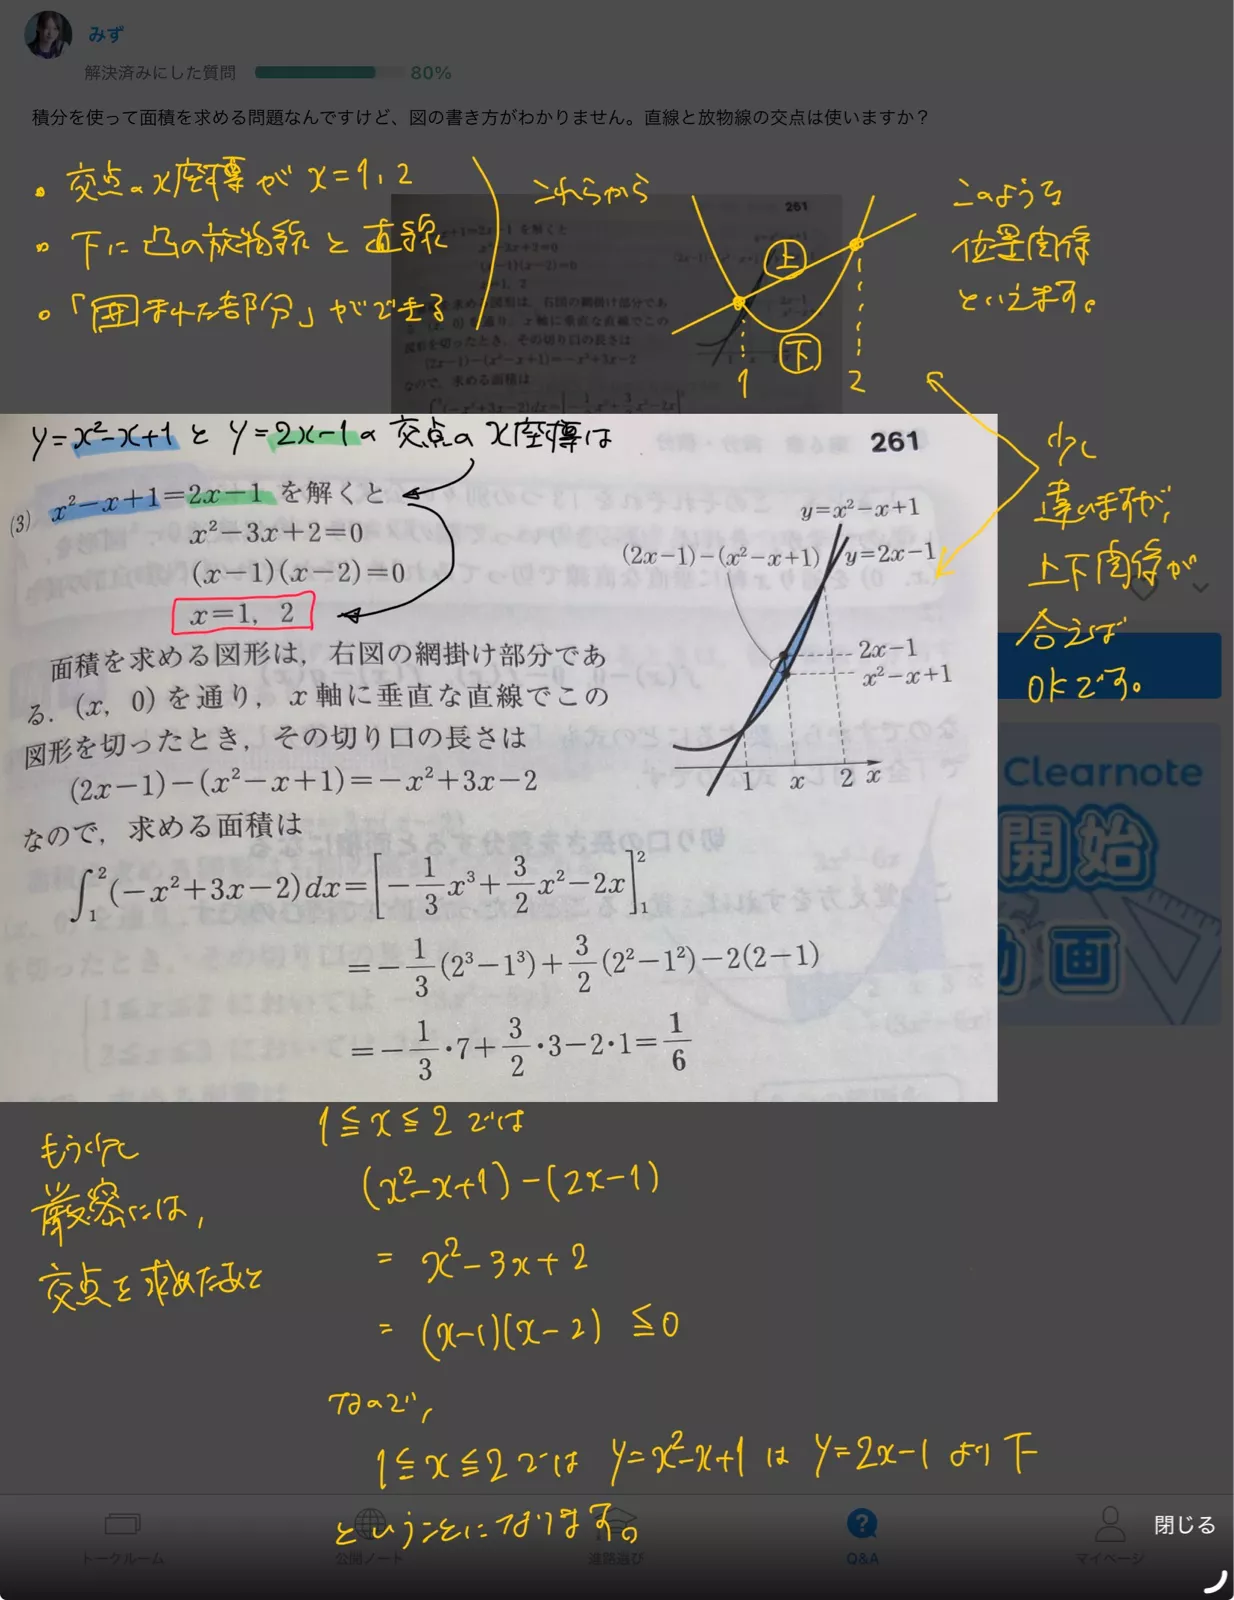 みず
解決済みにした質問 80%
積分を使って面積を求める問題なんですけど、図の書き方がわかりません。直線と放物線の交点は使いますか？
・交点のx座標が x=1, 2
・下に凸の放物線と直線
・「囲まれた部分」ができる
これらから
上
下
1 2
このような
位置関係
といえます。
少し
違いますが、
上下関係が
合えば
OKです。
y=x²-x+1 と y=2x-1 の交点のx座標は
261
(3) x²-x+1=2x-1 を解くと
x²-3x+2=0
(x-1)(x-2)=0
x=1, 2
y=x²-x+1
(2x-1)-(x²-x+1)
y=2x-1
2x-1
x²-x+1
1 x 2 x
面積を求める図形は，右図の網掛け部分であ
る．(x, 0) を通り，x 軸に垂直な直線でこの
図形を切ったとき，その切り口の長さは
(2x-1)-(x²-x+1)=-x²+3x-2
なので，求める面積は
∫₁²(-x²+3x-2)dx=[-1/3x³+3/2x²-2x]₁²
=-1/3(2³-1³)+3/2(2²-1²)-2(2-1)
=-1/3・7+3/2・3-2・1=1/6
Clearnote
開始
動画
もう少し
厳密には,
交点を求めたあと
1≦x≦2 では
(x²-x+1)-(2x-1)
= x²-3x+2
= (x-1)(x-2) ≦0
なので,
1≦x≦2では y=x²-x+1 は y=2x-1 より下
ということになります。
トークルーム 公開ノート 進路選び Q&A マイページ
閉じる